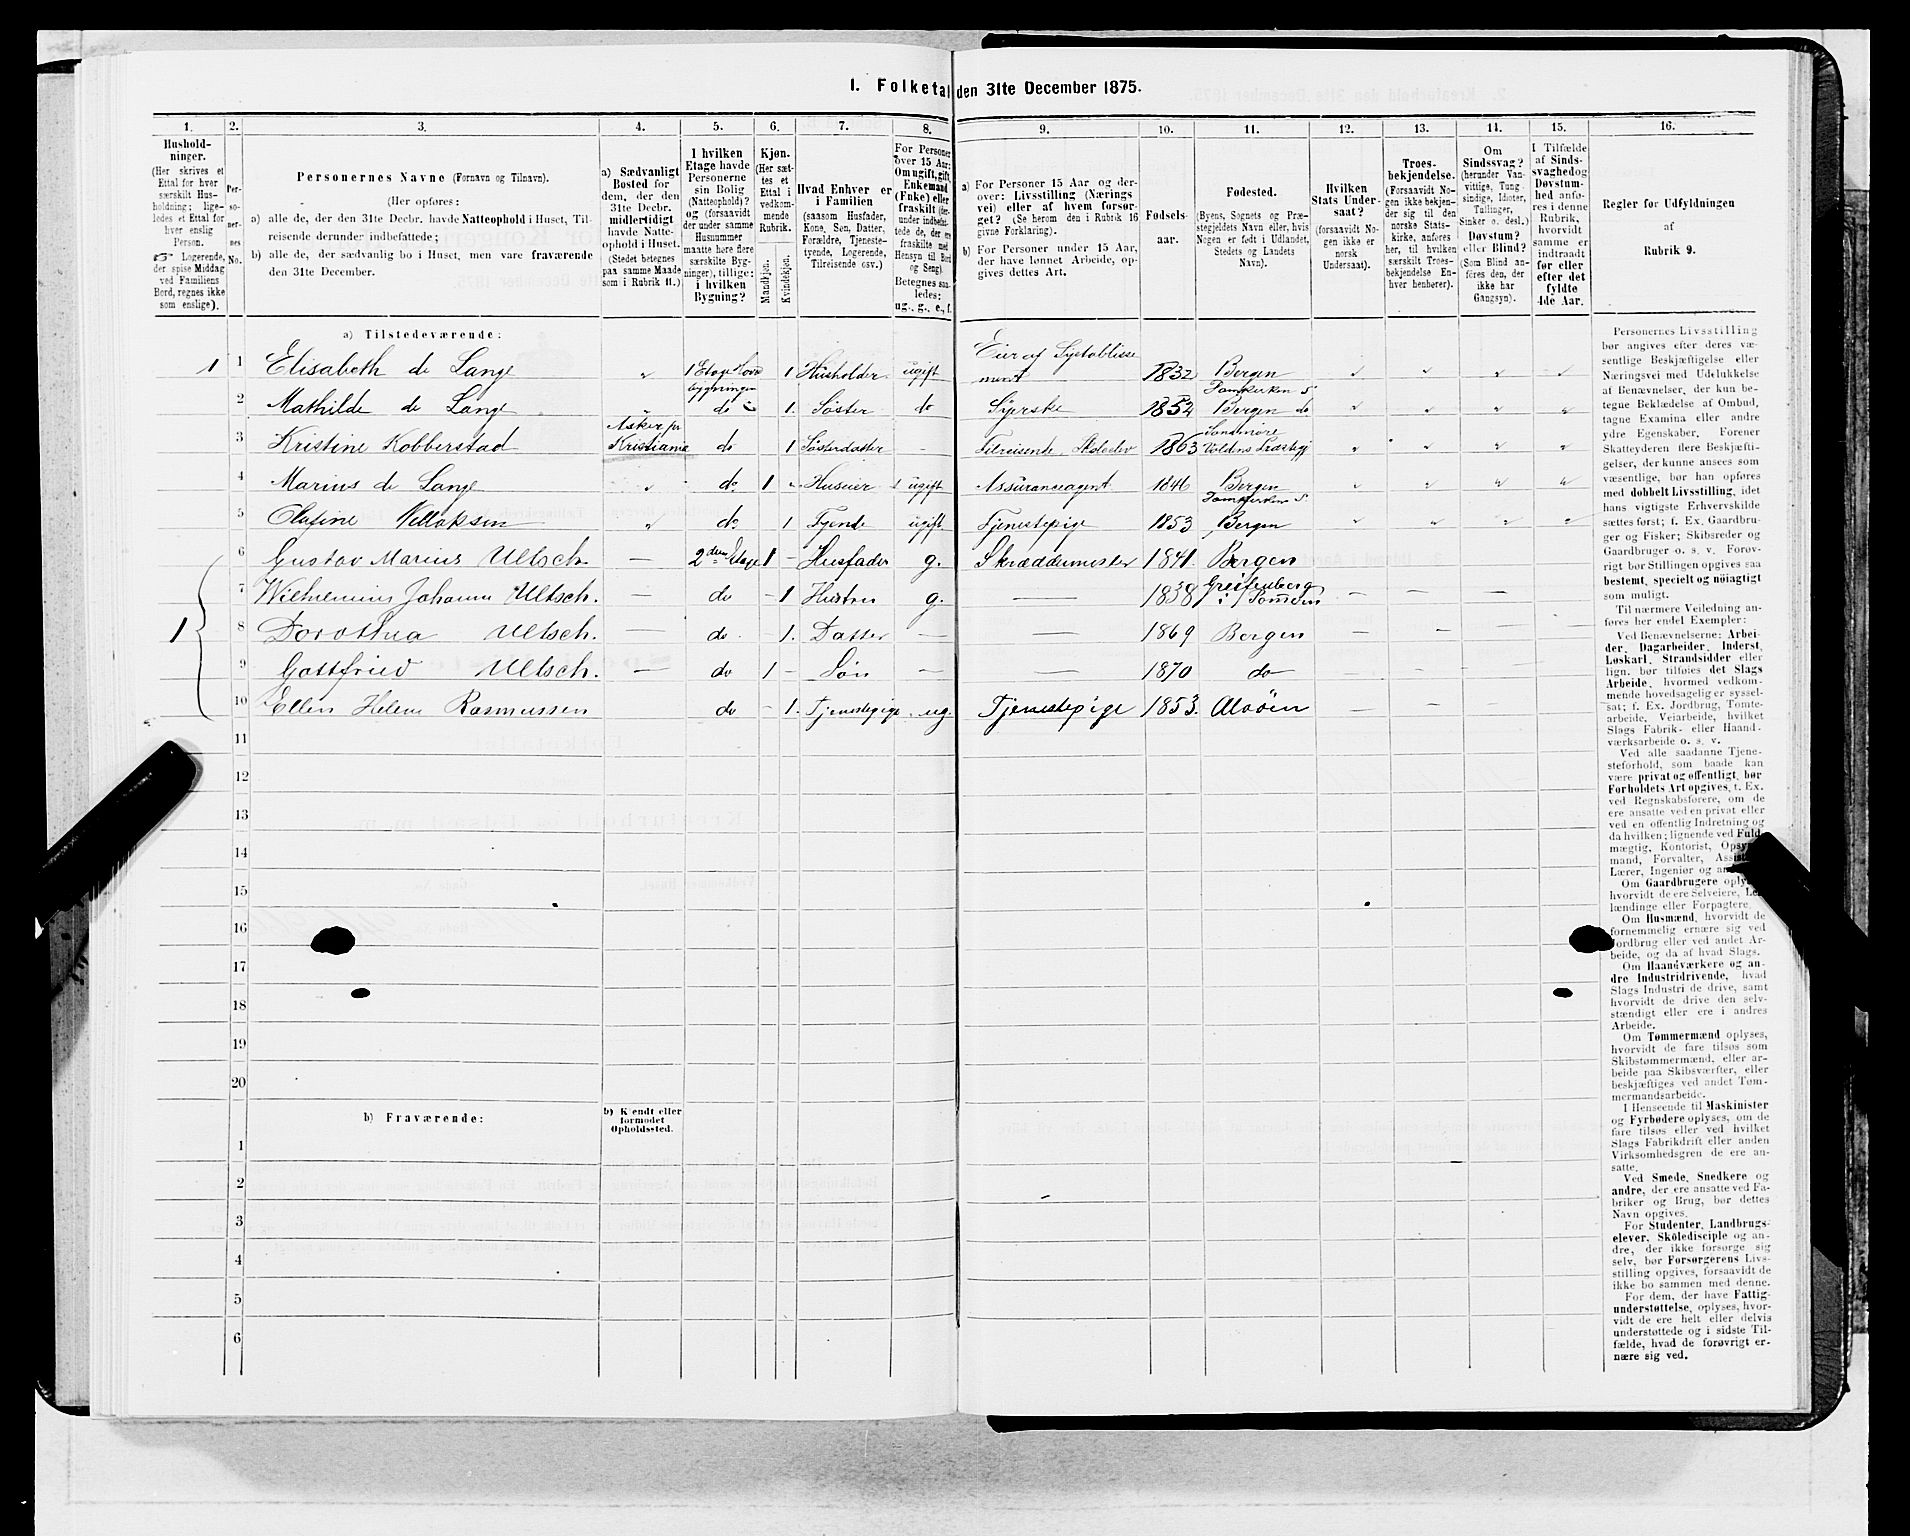 1. Folketal den 31te December 1875.
1. 2. 3. 4. 5. 6. 7. 8. 9. 10. 11. 12. 13. 14. 15. 16.
Hushold-
ninger.
(Her skrives et
Ettal for hver
særskilt Hus-
holdning; lige-
ledes et Ettal for
hver enslig
Person.
☞ Logerende,
der spise Middag
ved Familiens
Bord, regnes ikke
som enslige).
Per-
so-
ner-
nes
No.
Personernes Navne (Fornavn og Tilnavn).
(Her opføres:
a) alle de, der den 31te Decbr. havde Natteophold i Huset, Til-
reisende derunder indbefattede;
b) alle de, der sædvanlig bo i Huset, men vare fraværende
den 31te December.
a) Sædvanligt
Bosted for
dem, der den
31te Decbr.
midlertidigt
havde Natte-
ophold i Huset.
(Stedet betegnes
paa samme Maade
som i Rubrik 11.)
I hvilken
Etage havde
Personerne
sin Bolig
(Natteophold)?
og (forsaavidt
der under samme
Husnummer
maatte høre flere
særskilte Byg-
ninger), tillige:
i hvilken
Bygning?
Kjøn.
(Her sæt-
tes et
Ettal i
vedkom-
mende
Rubrik.
Mandkjøn.
Kvindekjøn.
Hvad Enhver er
i Familien
(saasom Husfader,
Kone, Søn, Datter,
Forældre, Tjeneste-
tyende, Logerende,
Tilreisende osv.)
For Personer
over 15 Aar:
Om ugift, gift,
Enkemand
(Enke) eller
fraskilt (der-
under indbefat-
tede de, der ere
fraskilte med
Hensyn til Bord
og Seng).
Betegnes saa-
ledes:
ug., g., e., f.
a) For Personer 15 Aar og der-
over: Livsstilling (Nærings-
vei) eller af hvem forsør-
get? (Se herom den i Rubrik 16
givne Forklaring).
b) For Personer under 15 Aar,
der have lønnet Arbeide, op-
gives dettes Art.
Fødsels-
aar.
Fødested.
(Byens, Sognets og Præ-
stegjeldets Navn eller, hvis
Nogen er født i Udlandet,
Stedets og Landets
Navn).
Hvilken
Stats Under-
saat?
(forsaavidt No-
gen ikke er
norsk
Undersaat).
Troes-
bekjendelse.
(Forsaavidt No-
gen ikke bekjen-
der sig til den
norske Stats-
kirke, anføres
her, til hvilken
særskilt Troes-
bekjendelse En-
hver henhører).
Om
Sindssvag?
(herunder Van-
vittige, Tung-
sindige, Idioter,
Tullinger,
Sinker o. desl.)
Døvstum?
eller Blind?
(Som Blind an-
føres den, der
ikke har
Gangsyn).
I Tilfælde
af Sinds-
svaghed og
Døvstum-
hed anfø-
res i denne
Rubrik,
hvorvidt
samme er
indtraadt
før eller
efter det
fyldte
4de Aar.
Regler for Udfyldningen
af
Rubrik 9.
a) Tilstedeværende:
1 1 Elisabeth de Lange " 1 Etage bygningen 1 Husholder ugift Eier af Syetablisse ment 1832 Bergen Domkirken S " " " "
2 Mathilde de Lange " do 1. Søster do Syerske 1852 Bergen do " " " "
3 Kristine Kobberstad Asker pr Kristiania do 1 Søsterdatter - Tilreisende Skoleelev 1863 Søndmøre Voldens Præstegj " " " "
4 Marius de Lange " do 1 " Huseier ugift Assuranceagent 1846 Bergen Domkirkens S " " " "
5 Olafine " do 1 Tyende ugift Tjenestepige 1853 Bergen " " " "
6 Gustav Marius Ultsch — 2den Etage 1 — Husfader g. Skræddermester 1841. Bergen
1 7 Johanne Ultsch. — do — 1 Hustru g. 1838 Greifenberg i Pommern — — —
8 Dorothea Ultsch. — do 1. Datter — — 1869 Bergen — — —
9 Gottfried Ultsch. — do 1 — Søn — — 1870 do
10 Ellen Helene Rasmussen do — 1. Tjenestepige ug. Tjenestepige 1853. Alvøen
11
12
13
14
15
16
17
18
19
20
b) Fraværende:
b) Kjendt eller
formodet
Opholdssted.
1
2
3
4
5
6
Personernes Livsstilling
bør angives efter deres væ-
sentlige Beskjæftigelse eller
Næringsvei med Udelukkelse
af Benævnelser, der kun be-
tegne Beklædelse af Ombud,
tagne Examina eller andre
ydre Egenskaber. Forener
Skatteyderen flere Beskjæfti-
gelser, der kunne ansees som
væsentlige, bør han opføres
med dobbelt Livsstilling, idet
hans vigtigste Erhvervskilde
sættes først; f. Ex. Gaardbru-
ger og Fisker; Skibsreder og
Gaardbruger o. s. v. Forøv-
rigt bør Stillingen opgives saa
bestemt, specielt og nøiagtigt
som muligt.
Til nærmere Veiledning an-
føres her endel Exempler:
Ved Benævnelserne: Arbei-
der, Dagarbeider, Inderst,
Løskarl, Strandsidder eller
lign. bør tilføies det Slags
Arbeide, hvormed vedkom-
mende hovedsagelig er syssel-
sat; f. Ex. Jordbrug, Tomte-
arbeide, Veiarbeide, hvilket
Slags Fabrik- eller Haand-
værksarbeide o. s. v.
Ved alle saadanne Tjene-
steforhold, som baade kan
være privat og offentligt, bør
Forholdets Art opgives, t. Ex.
ved Regnskabsførere, om de
ere ansatte ved en privat eller
ved en offentlig Indretning og
da hvilken; lignende ved Fuld-
mægtig, Kontorist, Opsyns-
mand, Forvalter, Assistent,
Lærer, Ingeniør og andre.
Om Gaardbrugere oplyses,
hvorvidt de ere Selveiere, Lei-
lændinge eller Forpagtere.
Om Husmænd, hvorvidt de
fornemmelig ernære sig ved
Jordbrug eller ved andet Ar-
beide, og da af hvad Slags.
Om Haandværkere og an-
dre Industridrivende, hvad
Slags Industri de drive, samt
hvorvidt de drive den selv-
stændigt eller ere i andres
Arbeide.
Om Tømmermænd oplyses,
hvorvidt de fare tilsøs som
Skibstømmermænd, eller ar-
beide paa Skibsværfter, eller
beskjæftiges ved andet Tøm-
mermandsarbeide.
I Henseende til Maskinister
og Fyrbødere oplyses, om de
fare tilsøs eller ved hvilket
Slags Fabrikdrift eller anden
Virksomhedsgren de ere an-
satte.
Ved Smede, Snedkere og
andre, der ere ansatte ved Fa-
briker og Brug, bør dettes
Navn opgives.
For Studenter, Landbrugs-
elever, Skoledisciple og an-
dre, der ikke forsørge sig
selv, bør Forsørgerens Livs-
stilling opgives, forsaavidt de
ikke bo sammen med denne.
For dem, der have Fattig-
understøttelse, oplyses, hvor-
vidt de ere helt eller delvis
understøttede og i sidste Til-
fælde, hvad de forøvrigt er-
nære sig ved.